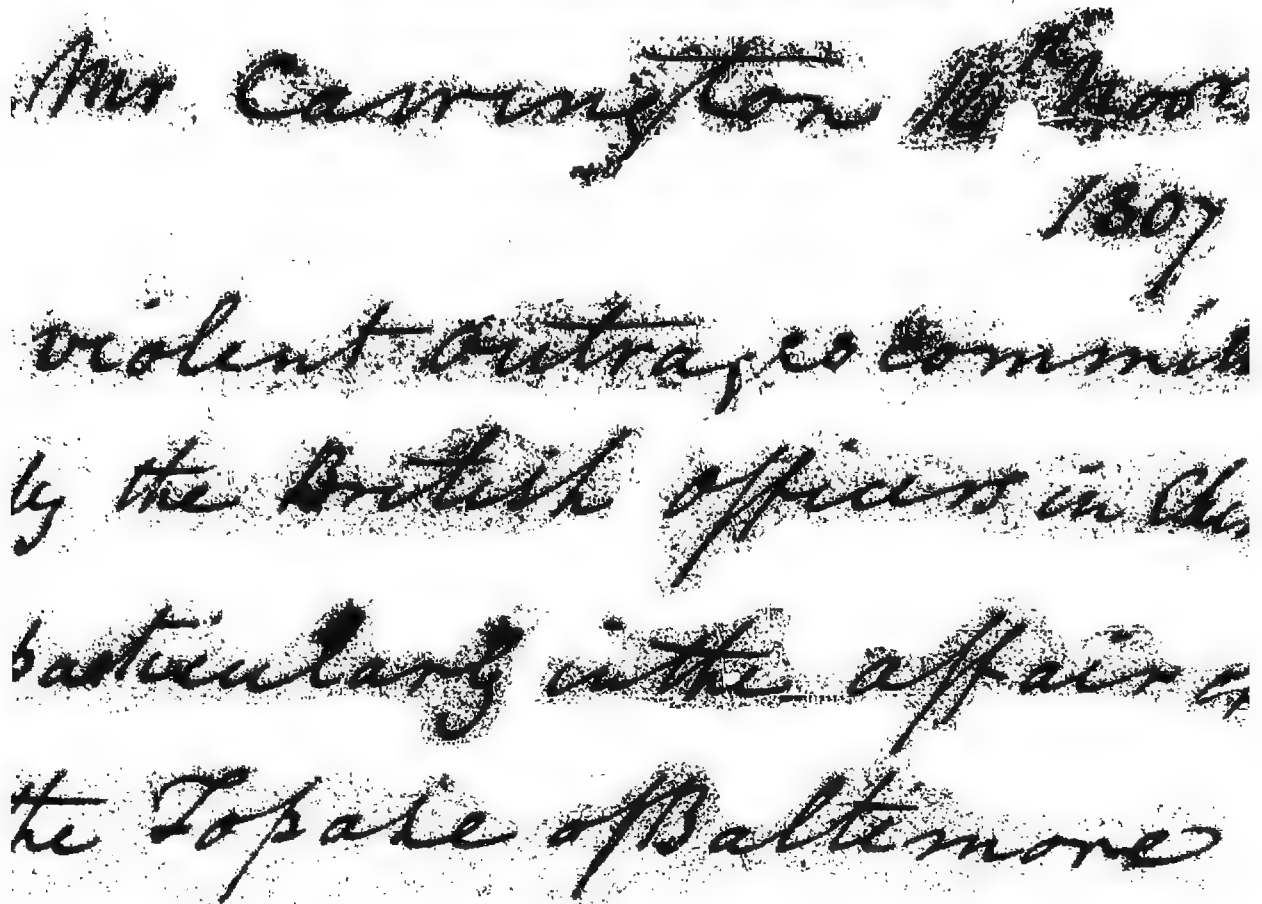 Mr Carrington 16th Nov
1807
violent outrages commit
by the British officers in Chi
particularly in the affair of
the Topase of Baltimore